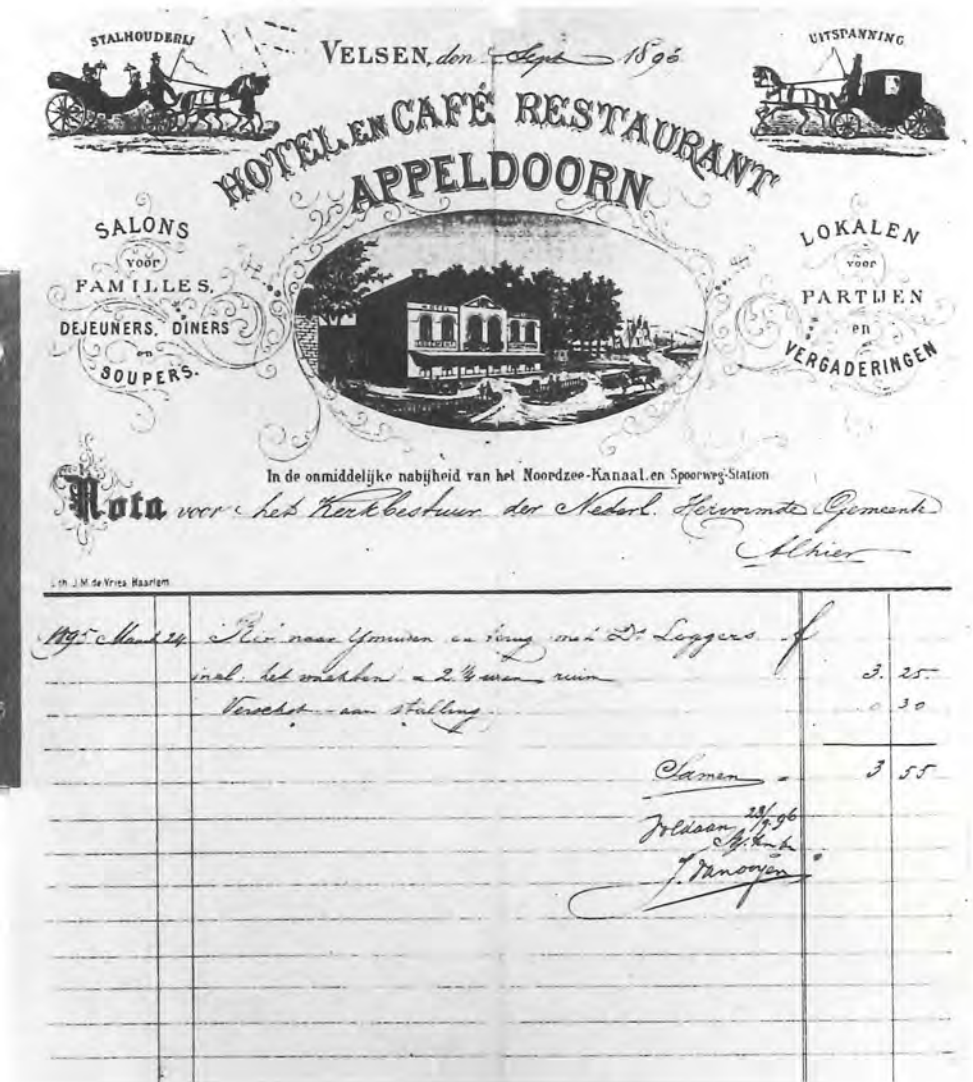 STALHOUDERIJ
UITSPANNING
VELSEN, den Sept 1896
HOTEL EN CAFÉ RESTAURANT
APPELDOORN
SALONS
voor
FAMILLES,
DEJEUNERS, DINERS
en
SOUPERS.
LOKALEN
voor
PARTIJEN
en
VERGADERINGEN
In de onmiddelijke nabijheid van het Noordzee-Kanaal en Spoorweg-Station
Nota voor het Kerkbestuur der Nederl. Hervormde Gemeente
Alhier
Lith. J.M. de Vries Haarlem
1895 Maart 24 Rit naar Ymuiden en terug met Ds Loggers f
incl. het wachten a 2 ½ uren ruim 3. 25
Verschot aan stalling 0 30
Samen 3 55
Voldaan 23/9 96
J. Vanooyen